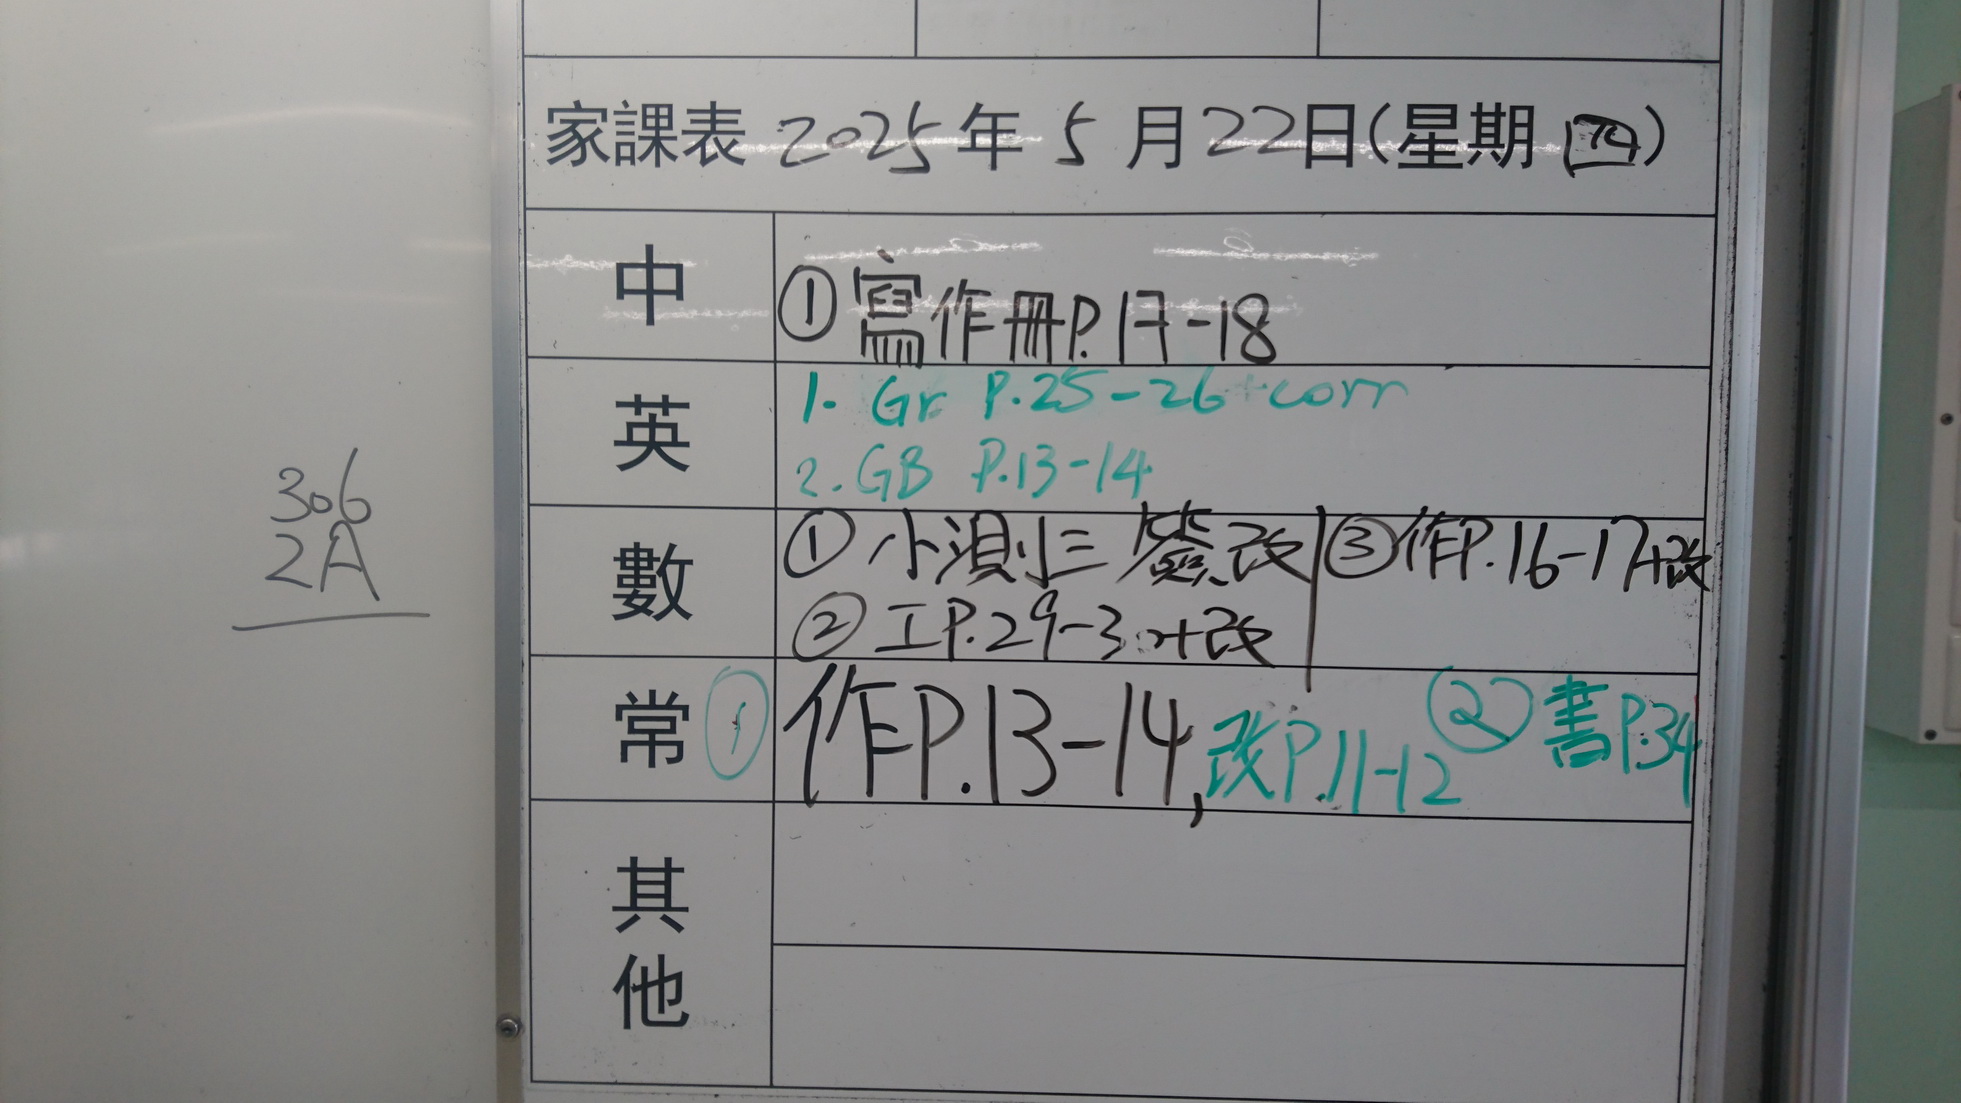 306
2A
家課表 2025年5月22日(星期四)
中
①寫作冊P.17-18
英
1. Gr P.25-26+corr
2. GB P.13-14
數
①小測三 簽改
②工P.29-30+改
③作P.16-17+改
常
①作P.13-14,改P.11-12 ②書P.34
其他